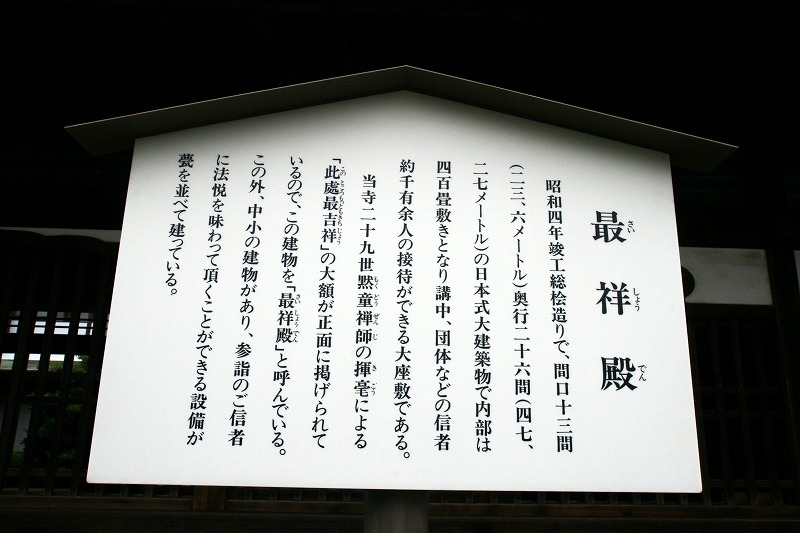 最祥殿
昭和四年竣工総桧造りで、間口十三間
(二三、六メートル)奥行二十六間(四七、
二七メートル)の日本式大建築物で内部は
四百畳敷きとなり講中、団体などの信者
約千有余人の接待ができる大座敷である。
当寺二十九世黙童禅師の揮毫による
「此處最吉祥」の大額が正面に掲げられて
いるので、この建物を「最祥殿」と呼んでいる。
この外、中小の建物があり、参詣のご信者
に法悦を味わって頂くことができる設備が
甍を並べて建っている。